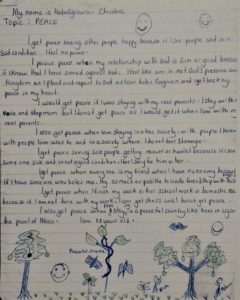 My name is Kabatignwa Christine
Topic : PEACE
I get peace seeing other people happy because if I see people sad or in
sad condition. I feel no peace.
I pursue peace when my relationship with God is firm or good because
if I know that I have sinned against God. I feel like am in not God's presence
Kingdom so I plead and repent to God so I can have Forgiven and get back my
peace in my heart.
I would get peace if I was staying with my real parents. I stay with
and stepmom but I do not get peace as I would get it when I am with
real parents.
I also get peace when am staying in a free society with people I know
with people I am used to and in a society where I do not feel Stranger.
I get peace seeing sick people getting recover or healed because if I see
some one sick and in not a good condition I feel sorry for him or her.
I get peace when every one is my friend when I have no enemy
if I have some one who hates me. I try as much as possible to create friendship with
I get peace when I finish my work either school work or domestic
because if I am not done with my work I am get stress and I do not get peace.
I also get peace when I stay in a peaceful country like here in Uganda
the pearl of Africa. I am 15 years old.
Peaceful